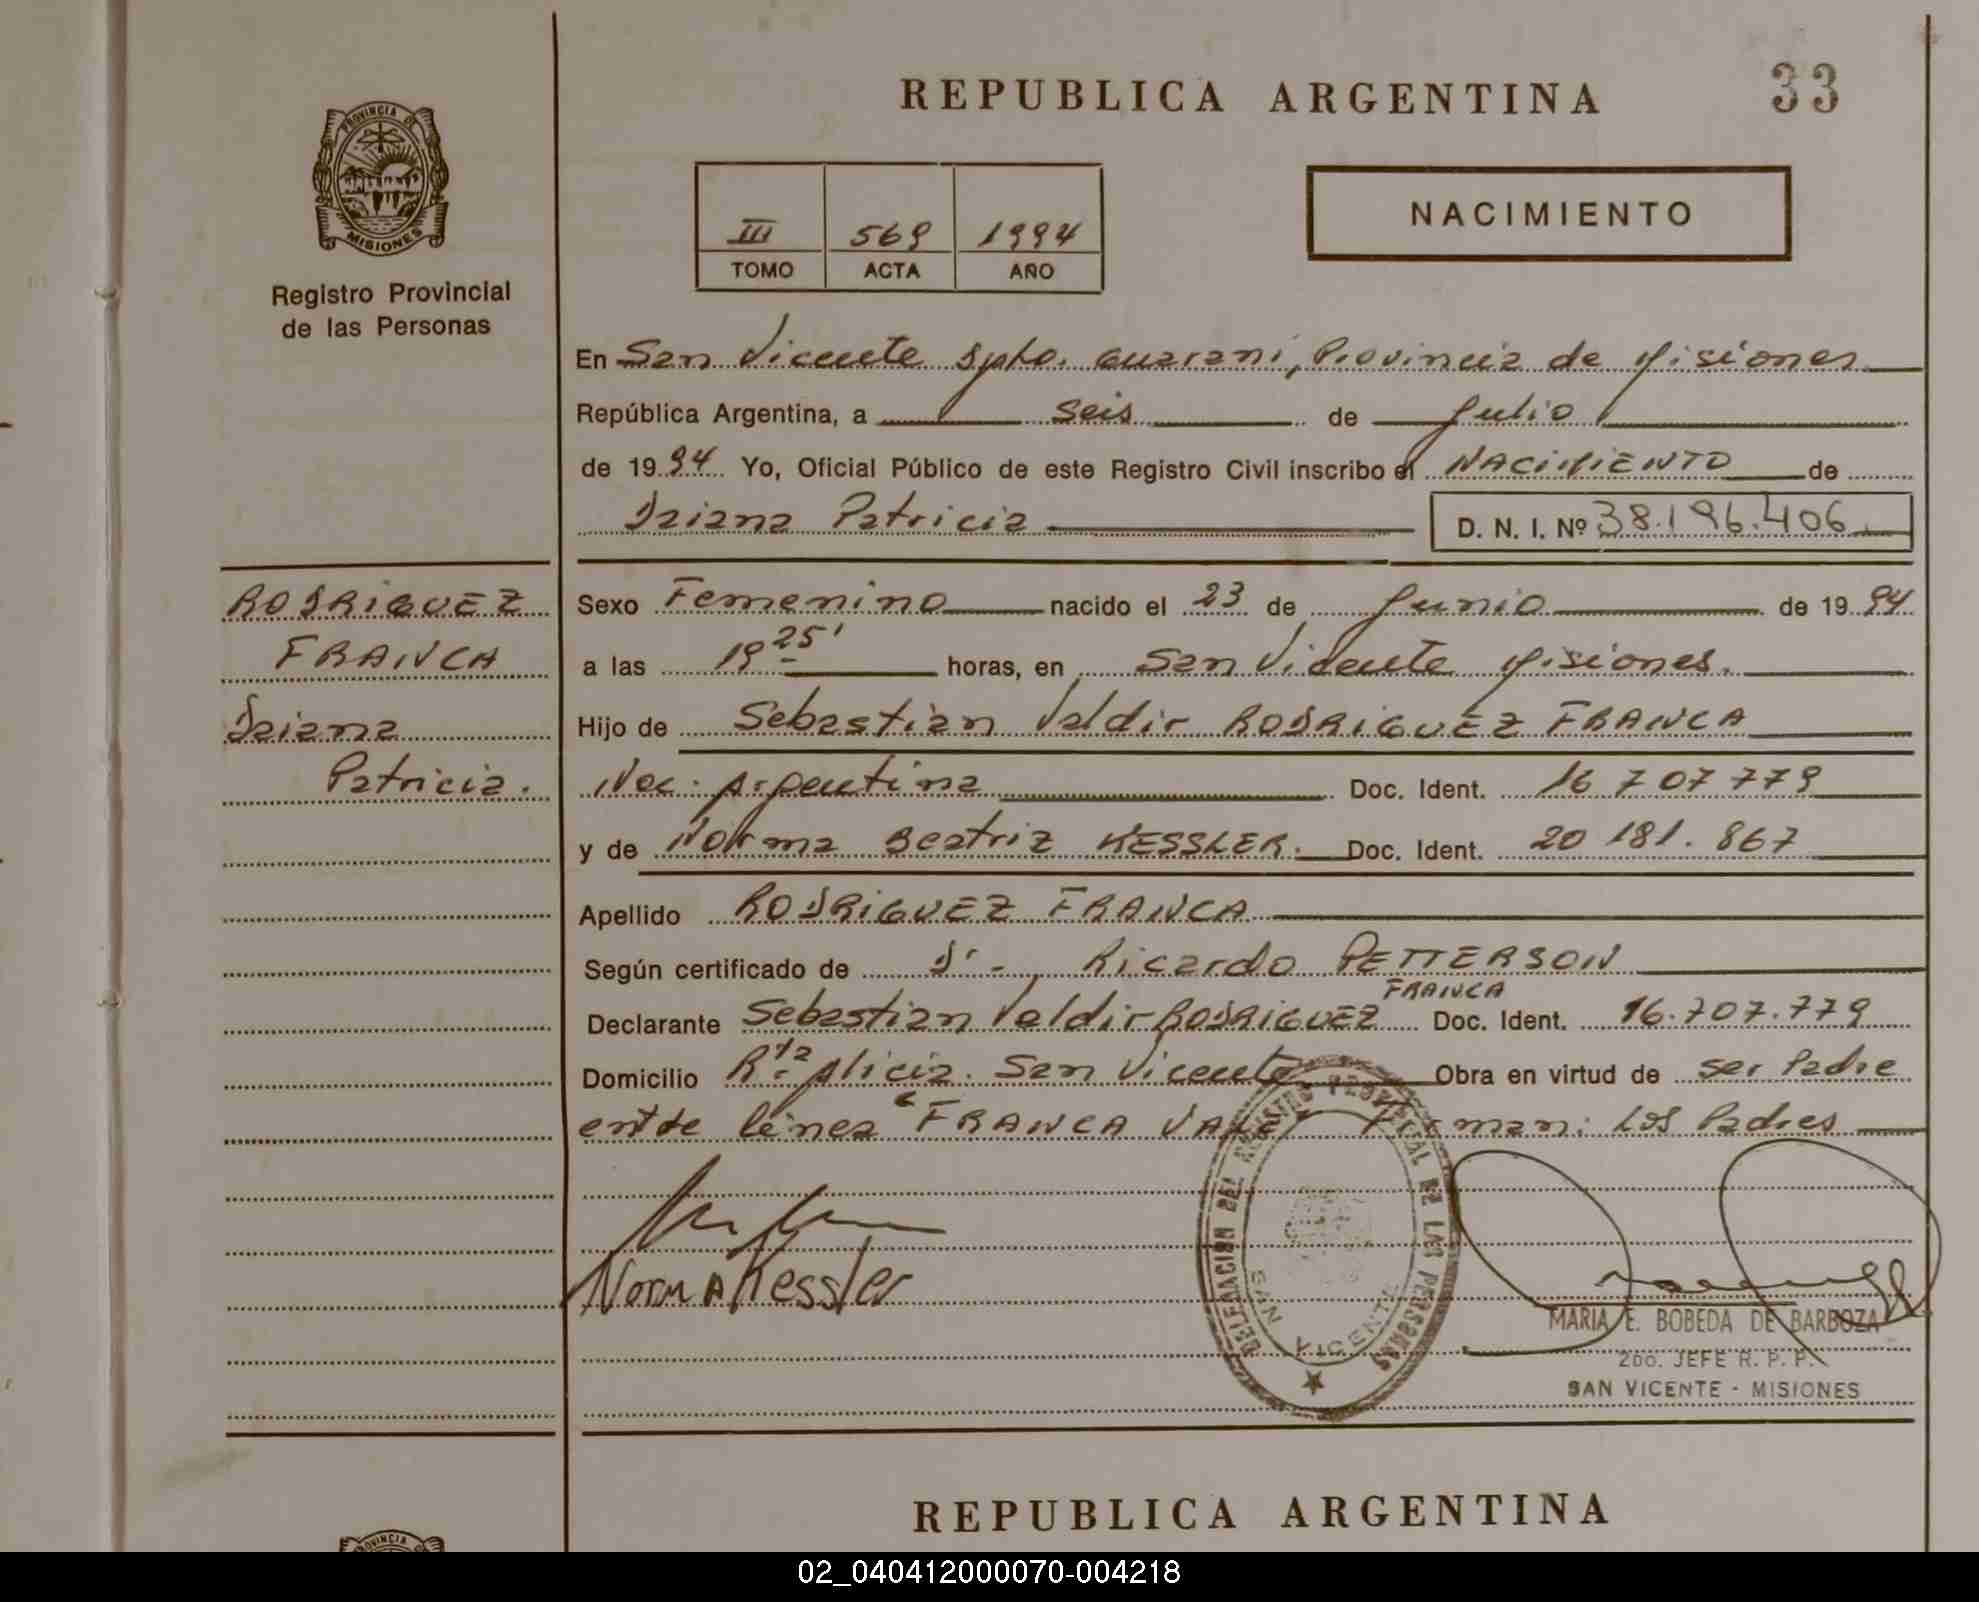 REPUBLICA ARGENTINA
33
PROVINCIA DE
MISIONES
Registro Provincial
de las Personas
III 569 1994
TOMO ACTA AÑO
NACIMIENTO
En San Vicente Dpto. Guarani, Provincia de Misiones
República Argentina, a seis de Julio
de 1994 Yo, Oficial Público de este Registro Civil inscribo el NACIMIENTO de
Daiana Patricia D. N. I. Nº 38.196.406
RODRIGUEZ
FRANCA
Daiana
Patricia.
Sexo Femenino nacido el 23 de Junio de 1994
a las 19 25' horas, en San Vicente Misiones.
Hijo de Sebastian Valdir RODRIGUEZ FRANCA
Nac. Argentina Doc. Ident. 16 707 779
y de Norma Beatriz KESSLER. Doc. Ident. 20 181. 867
Apellido RODRIGUEZ FRANCA
Según certificado de Dr. Ricardo PETTERSON
FRANCA
Declarante Sebastian Valdir RODRIGUEZ Doc. Ident. 16.707.779
Domicilio Alicia. San Vicente Obra en virtud de ser Padre
entre linea "FRANCA VALE Firman: Los Padres
Norma Kessler
DELEGACION DEL REGISTRO PROVINCIAL DE LAS PERSONAS
SAN VICENTE
MARIA E. BOBEDA DE BARBOZA
2DO. JEFE R. P. P.
SAN VICENTE - MISIONES
REPUBLICA ARGENTINA
PROVINCIA
02_040412000070-004218